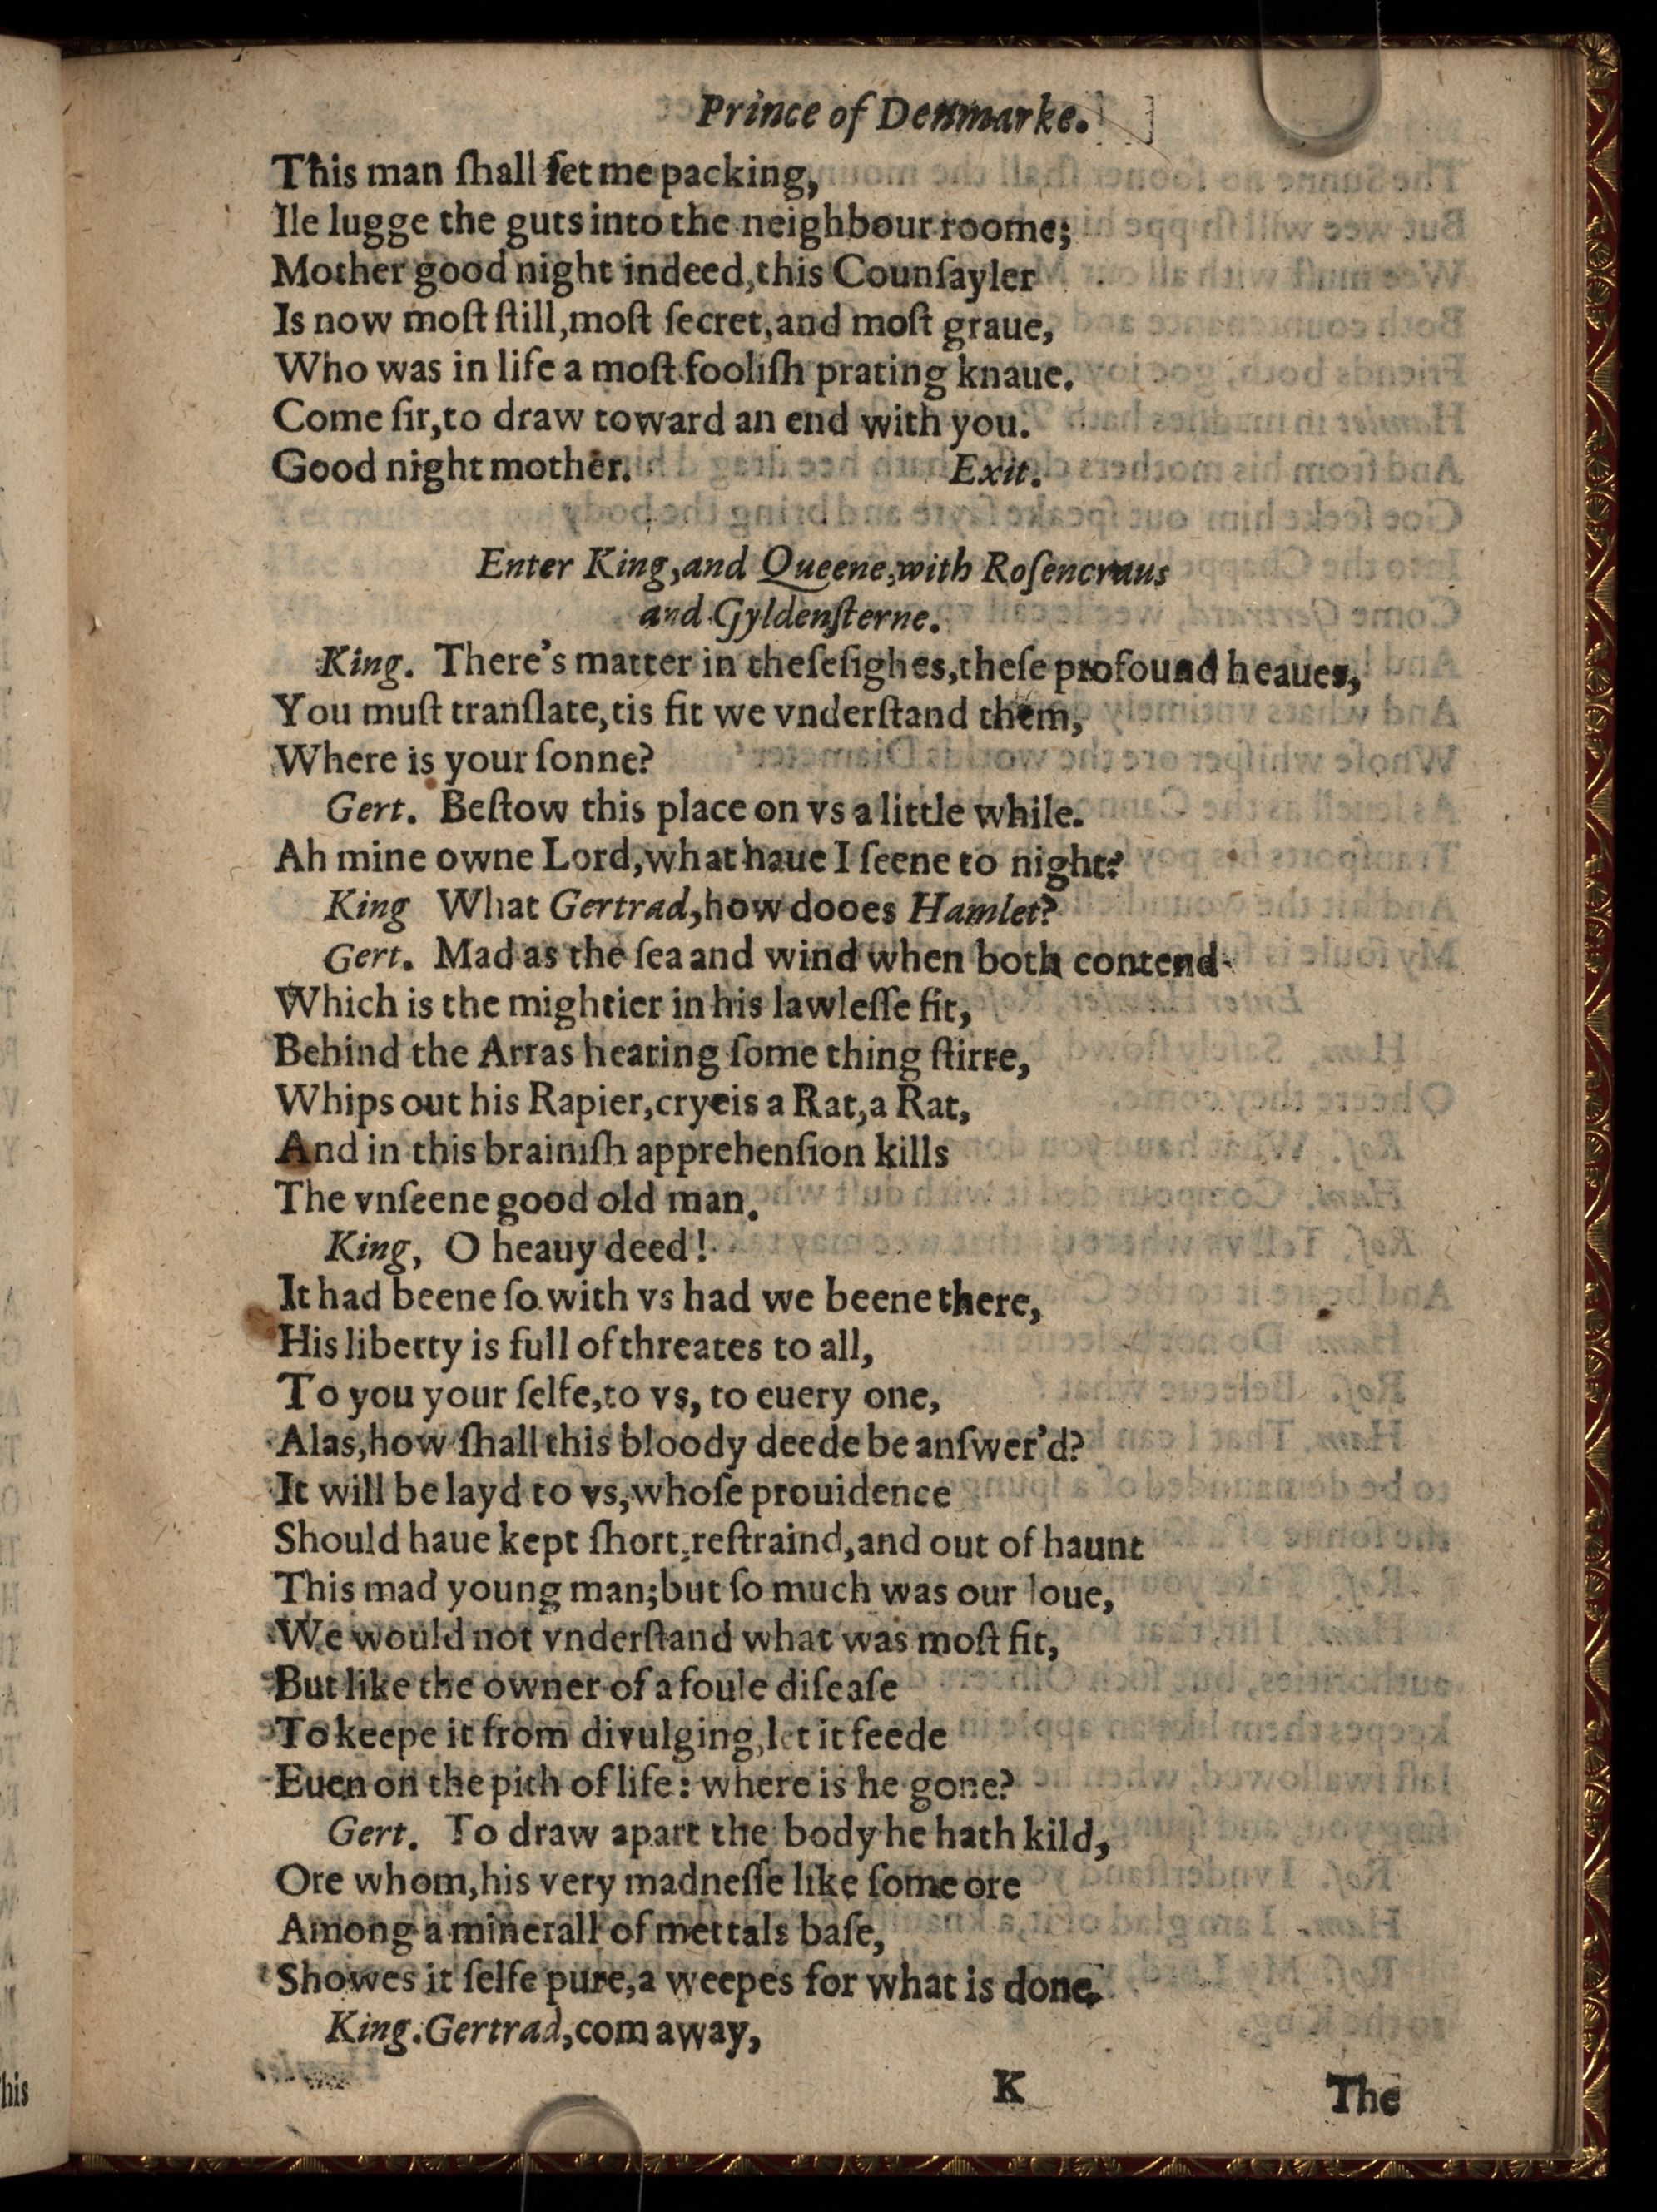 Prince of Denmarke.
This man ſhall ſet me packing,
Ile lugge the guts into the neighbour roome;
Mother good night indeed, this Counſayler
Is now moſt ſtill, moſt ſecret, and moſt graue,
Who was in life a moſt fooliſh prating knaue.
Come ſir, to draw toward an end with you.
Good night mother. Exit.
Enter King, and Queene, with Roſencraus
and Gyldenſterne.
King. There's matter in theſe ſighes, theſe profound heaues,
You muſt tranſlate, tis fit we vnderſtand them,
Where is your ſonne?
Gert. Beſtow this place on vs a little while.
Ah mine owne Lord, what haue I ſeene to night?
King What Gertrad, how dooes Hamlet?
Gert. Mad as the ſea and wind when both contend
Which is the mightier in his lawleſſe fit,
Behind the Arras hearing ſome thing ſtirre,
Whips out his Rapier, cryeis a Rat, a Rat,
And in this brainiſh apprehenſion kills
The vnſeene good old man.
King, O heauy deed!
It had beene ſo with vs had we beene there,
His liberty is full of threates to all,
To you your ſelfe, to vs, to euery one,
Alas, how ſhall this bloody deede be anſwer'd?
It will be layd to vs, whoſe prouidence
Should haue kept ſhort, reſtraind, and out of haunt
This mad young man; but ſo much was our loue,
We would not vnderſtand what was moſt fit,
But like the owner of a foule diſeaſe
To keepe it from divulging, let it feede
Euen on the pith of life: where is he gone?
Gert. To draw apart the body he hath kild,
Ore whom, his very madneſſe like ſome ore
Among a minerall of mettals baſe,
Showes it ſelfe pure, a weepes for what is done.
King. Gertrad, com away,
K The
his